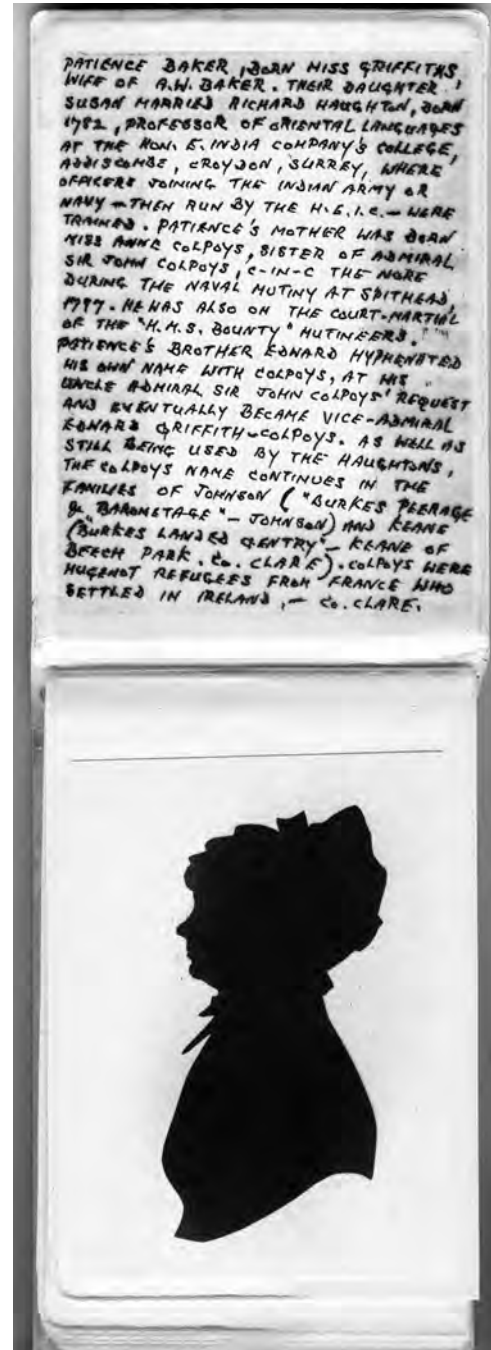 PATIENCE BAKER, BORN MISS GRIFFITHS
WIFE OF A.W. BAKER. THEIR DAUGHTER,
SUSAN MARRIED RICHARD HAUGHTON, BORN
1782, PROFESSOR OF ORIENTAL LANGUAGES
AT THE HON. E. INDIA COMPANY'S COLLEGE,
ADDISCOMBE, CROYDON, SURREY, WHERE
OFFICERS JOINING THE INDIAN ARMY OR
NAVY — THEN RUN BY THE H.E.I.C. — WERE
TRAINED. PATIENCE'S MOTHER WAS BORN
MISS ANNE COLPOYS, SISTER OF ADMIRAL
SIR JOHN COLPOYS, C-IN-C THE NORE
DURING THE NAVAL MUTINY AT SPITHEAD,
1797. HE WAS ALSO ON THE COURT-MARTIAL
OF THE "H.M.S. BOUNTY" MUTINEERS.
PATIENCE'S BROTHER EDWARD HYPHENATED
HIS OWN NAME WITH COLPOYS, AT HIS
UNCLE ADMIRAL SIR JOHN COLPOYS' REQUEST
AND EVENTUALLY BECAME VICE-ADMIRAL
EDWARD GRIFFITH-COLPOYS. AS WELL AS
STILL BEING USED BY THE HAUGHTONS,
THE COLPOYS NAME CONTINUES IN THE
FAMILIES OF JOHNSON ("BURKES PEERAGE
& BARONETAGE" — JOHNSON) AND KEANE
("BURKES LANDED GENTRY" — KEANE OF
BEECH PARK. CO. CLARE). COLPOYS WERE
HUGENOT REFUGEES FROM FRANCE WHO
SETTLED IN IRELAND, — CO. CLARE.